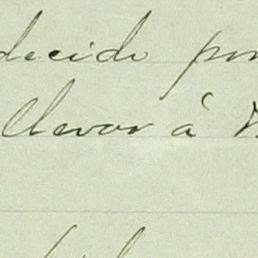 decide por
llevar á